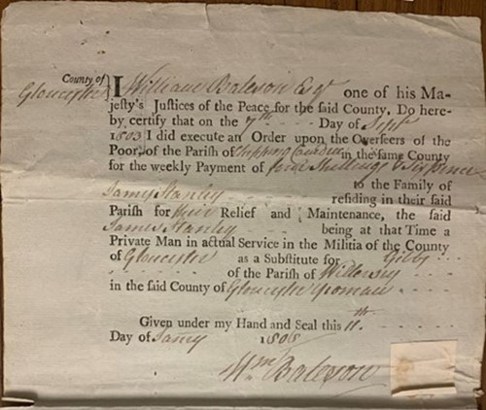 County of
Gloucester } I William Baleson Esqr one of his Ma-
jesty's Justices of the Peace for the said County, Do here-
by certify that on the 7th Day of Sept
1803 I did execute an Order upon the Overseers of the
Poor of the Parish of Chipping Camden in the same County
for the weekly Payment of four Shillings & Sixpence
to the Family of
James Stanley residing in their said
Parish for their Relief and Maintenance, the said
James Stanley being at that Time a
Private Man in actual Service in the Militia of the County
of Gloucester as a Substitute for Gibbs
of the Parish of Willersey
in the said County of Gloucester Yeoman
Given under my Hand and Seal this 11th
Day of Jany 1808
Wm Baleson